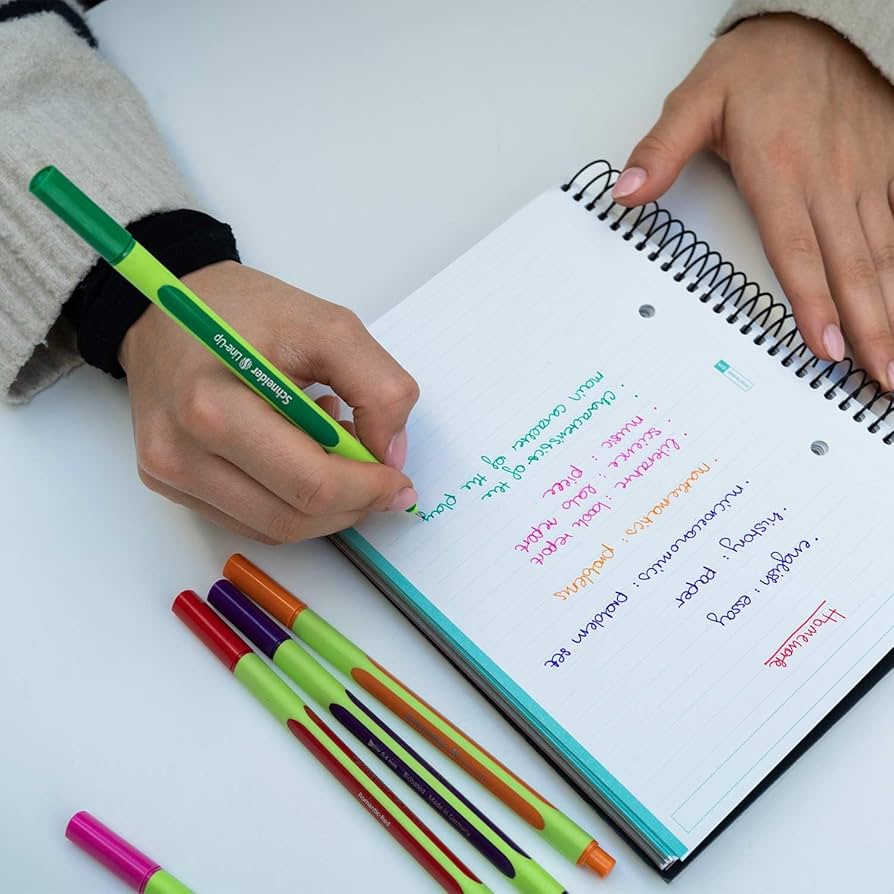 Homework
· english : essay
· history : paper
· microeconomics : problem set
· mathematics : problems
· literature : book report
· science : lab report
· music : piece
· characteristics of the
main character of the play
Schneider Line-Up
Romantic Red
Biobased · Made in Germany